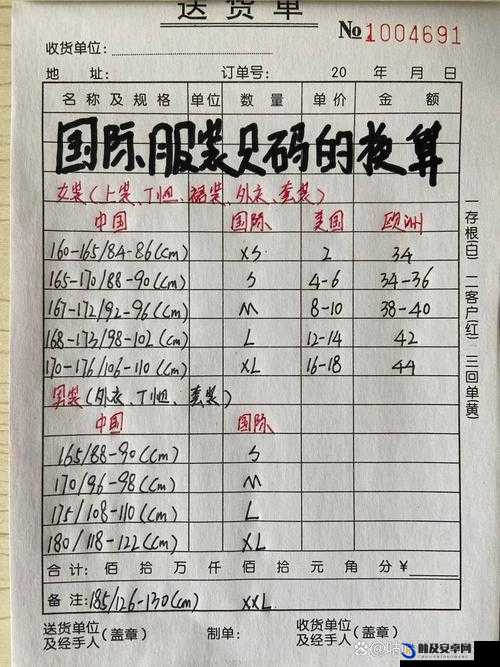 送货单
№1004691
收货单位:
地 址: 订单号: 20 年 月 日
名称及规格 单位 数量 单价 金额
国际服装尺码的换算
女装(上装、T恤、裙装、外衣、套装)
中国 国际 美国 欧洲
160-165/84-86(cm) XS 2 34
165-170/88-90(cm) S 4-6 34-36
167-172/92-96(cm) M 8-10 38-40
168-173/98-102(cm) L 12-14 42
170-176/106-110(cm) XL 16-18 44
男装(外衣、T恤、套装)
中国 国际
165/88-90(cm) S
170/96-98(cm) M
175/108-110(cm) L
180/118-122(cm) XL
合计: 佰 拾 万 仟 佰 拾 元 角 分 ¥
备注: 185/126-130(cm) XXL
送货单位及经手人(盖章) 制单: 收货单位及经手人
一存根(白) 二客户红) 三回单(黄)
触及安卓网